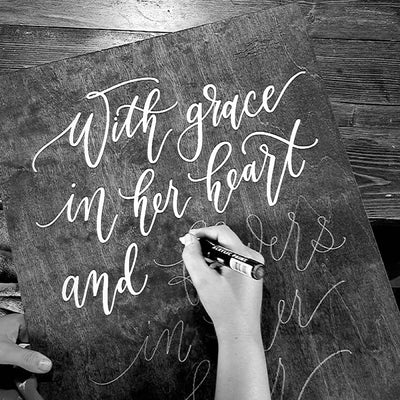 With grace
in her heart
and flowers
in her